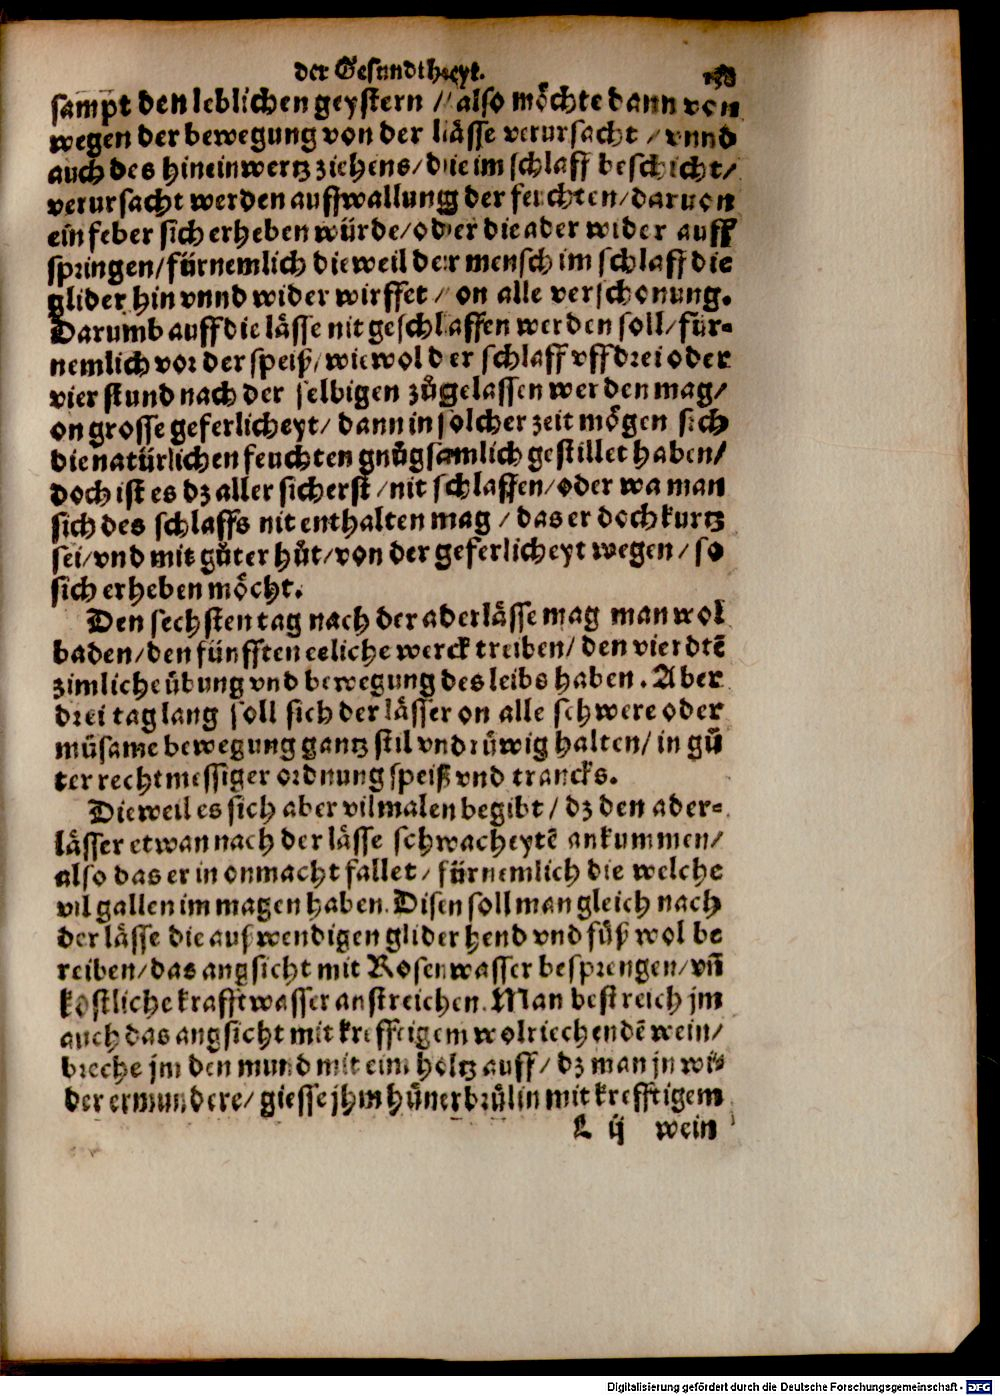 der Gesundtheyt.
sampt den leblichen geystern / also möchte dann von
wegen der bewegung von der lässe verursacht / vnnd
auch des hineinwertz ziehens / die im schlaff beschicht /
verursacht werden auffwallung der feuchten / daruon
ein feber sich erheben würde / oder die ader wider auff
springen / fürnemlich dieweil der mensch im schlaff die
glider hin vnnd wider wirffet / on alle verschonung.
Darumb auff die lässe nit geschlaffen werden soll / für-
nemlich vor der speiß / wiewol der schlaff vff drei oder
vier stund nach der selbigen zůgelassen werden mag /
on grosse geferlicheyt / dann in solcher zeit mögen sich
die natürlichen feuchten gnůgsamlich gestillet haben /
doch ist es dz aller sicherst / nit schlaffen / oder wa man
sich des schlaffs nit enthalten mag / das er doch kurtz
sei / vnd mit gůter hůt / von der geferlicheyt wegen / so
sich erheben möcht.
Den sechsten tag nach der aderlässe mag man wol
baden / den fünfften eeliche werck treiben / den vierdtē
zimliche übung vnd bewegung des leibs haben. Aber
drei tag lang soll sich der lässer on alle schwere oder
müsame bewegung gantz stil vnd rüwig halten / in gů
ter rechtmessiger ordnung speiß vnd trancks.
Dieweil es sich aber vilmalen begibt / dz den ader-
lässer etwan nach der lässe schwacheytē ankummen /
also das er in onmacht fallet / fürnemlich die welche
vil gallen im magen haben. Disen soll man gleich nach
der lässe die außwendigen glider hend vnd füß wol be
reiben / das angsicht mit Rosenwasser besprengen / vñ
kostliche krafftwasser anstreichen. Man bestreich jm
auch das angsicht mit krefftigem wolriechendē wein /
breche jm den mund mit eim holtz auff / dz man jn wi-
der ermundere / giesse jhm hünerbrülin mit krefftigem
L ij wein
Digitalisierung gefördert durch die Deutsche Forschungsgemeinschaft - DFG